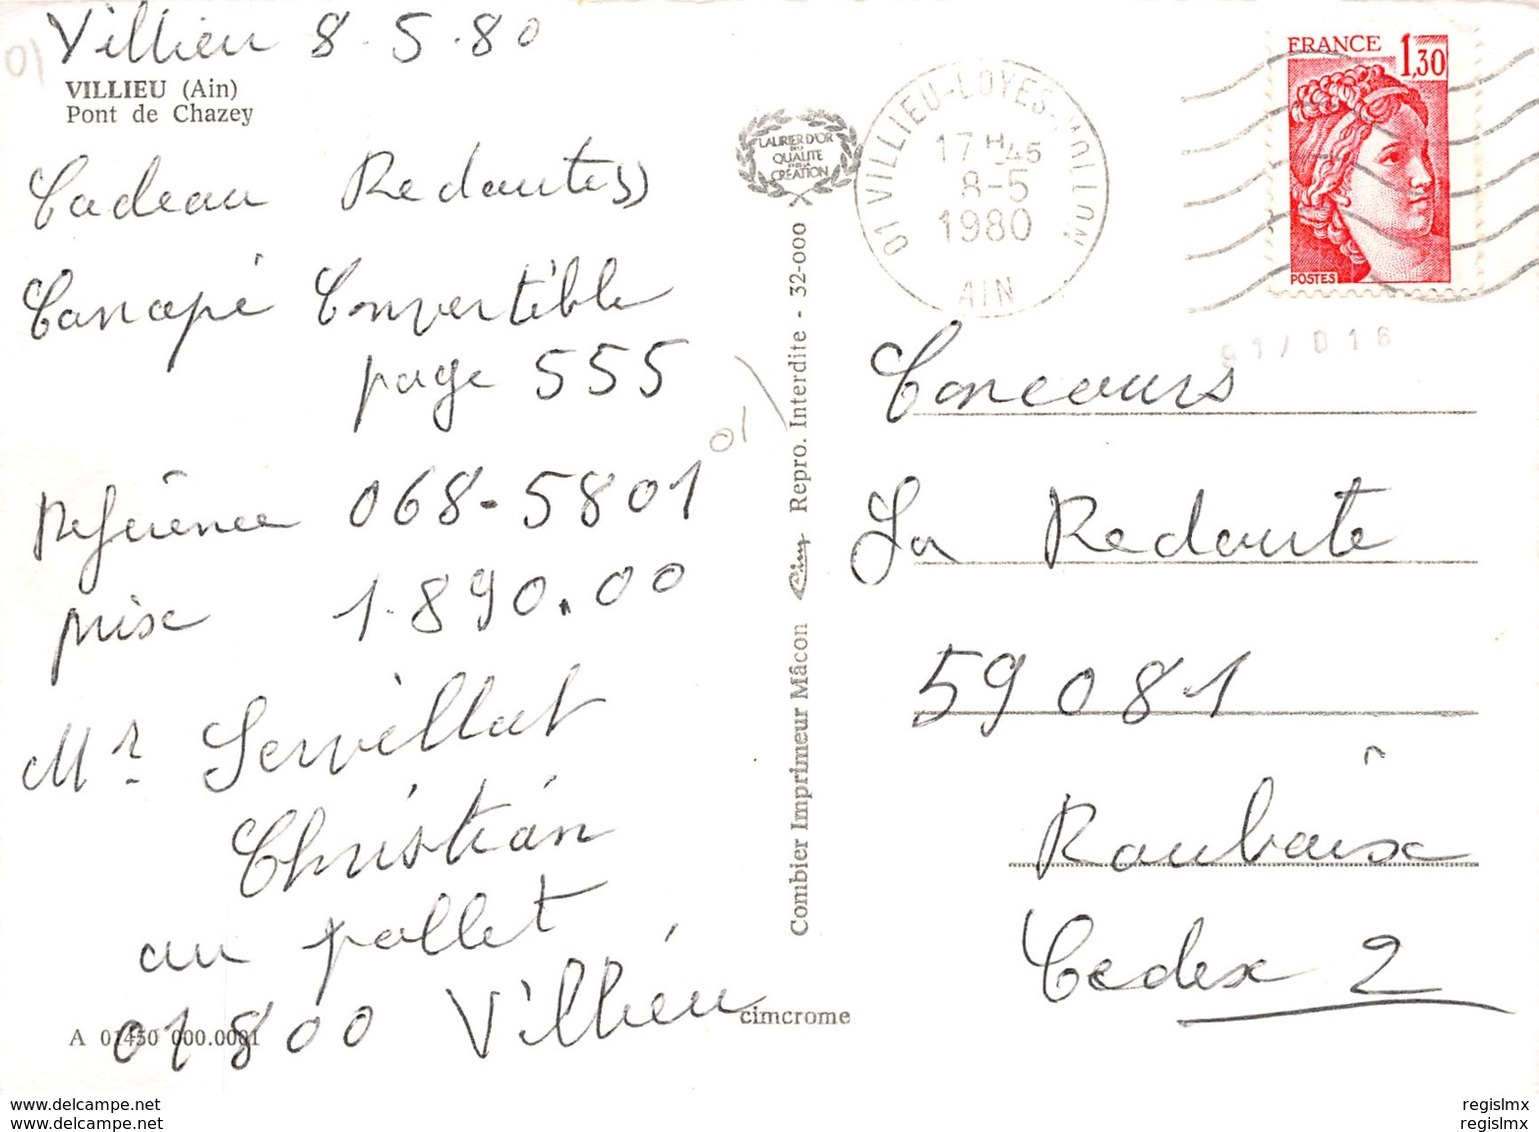 Villieu 8.5.80
01
VILLIEU (Ain)
Pont de Chazey
Cadeau Redoute
Canapé Convertible
page 555
01
Référence 068-5801
prix 1.890.00
Mr Servillat
Christian
au pollet
01800 Villieu
A 01450 000.0001
cimcrome
LAURIER D'OR
QUALITE
CREATION
Combier Imprimeur Mâcon Cim Repro. Interdite - 32-000
01 VILLIEU-LOYES-MOLLON
17H45
8-5
1980
AIN
FRANCE 1,30
POSTES
Concours
La Redoute
59081
Roubaix
Cedex 2
www.delcampe.net
www.delcampe.net
regislmx
regislmx